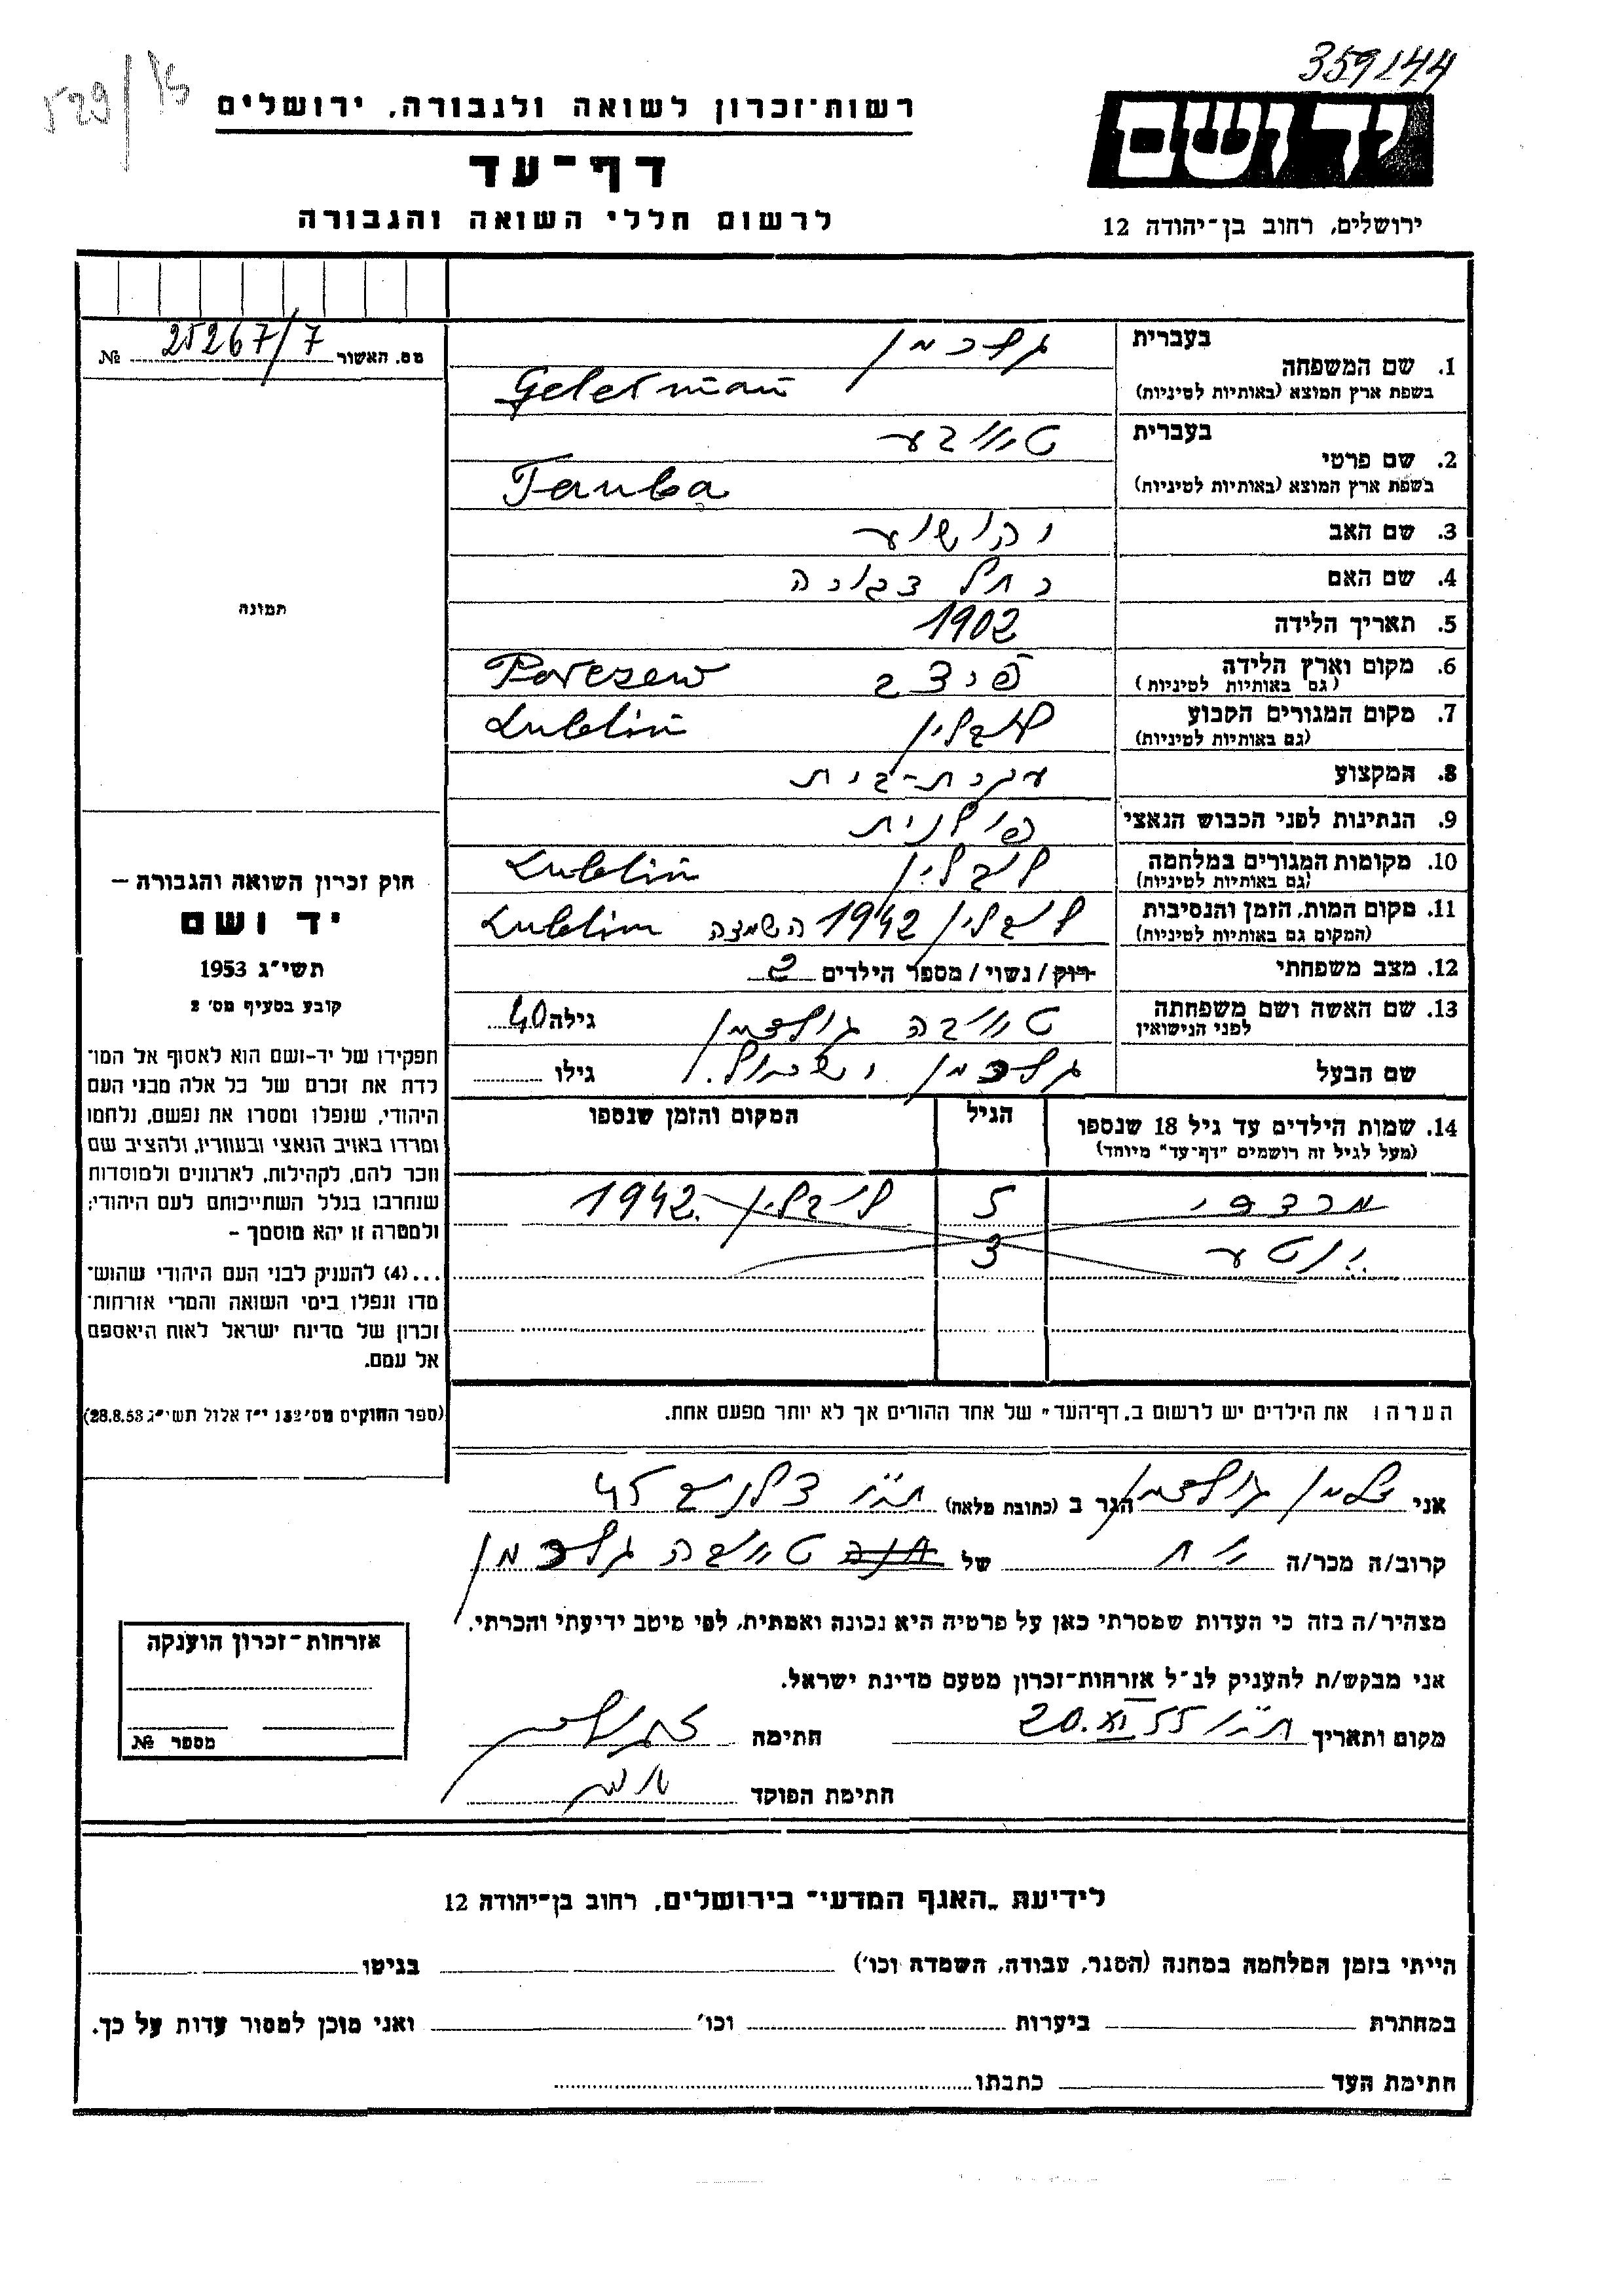 359144
529/15
רשות־זכרון לשואה ולגבורה, ירושלים
דף־עד
לרשום חללי השואה והגבורה
יד ושם
ירושלים, רחוב בן־יהודה 12
מס. האשור 25267/7 №
בעברית
1. שם המשפחה גלרמן
בשפת ארץ המוצא (באותיות לטיניות) Gelerman
בעברית
2. שם פרטי טויבע
בשפת ארץ המוצא (באותיות לטיניות) Tauba
3. שם האב יהושע
4. שם האם רחל דבורה
5. תאריך הלידה 1902
6. מקום וארץ הלידה
(גם באותיות לטיניות) Parczew
7. מקום המגורים הקבוע לובלין Lublin
(גם באותיות לטיניות)
8. המקצוע עקרת-בית
9. הנתינות לפני הכבוש הנאצי פולנית
10. מקומות המגורים במלחמה לובלין Lublin
(גם באותיות לטיניות)
11. מקום המות, הזמן והנסיבות לובלין 1942 השמדה Lublin
(המקום גם באותיות לטיניות)
12. מצב משפחתי רוק / נשוי / מספר הילדים 2
13. שם האשה ושם משפחתה טויבה גולדמן גילה 40
לפני הנישואין
שם הבעל גלרמן ישראל גילו
14. שמות הילדים עד גיל 18 שנספו הגיל המקום והזמן שנספו
(מעל לגיל זה רושמים "דף־עד" מיוחד)
מרדכי 5 לובלין 1942
3
הערה: את הילדים יש לרשום ב„דף־העד" של אחד ההורים אך לא יותר מפעם אחת.
תמונה
חוק זכרון השואה והגבורה –
יד ושם
תשי״ג 1953
קובע בסעיף מס' 2
תפקידו של יד-ושם הוא לאסוף אל המו־
לדת את זכרם של כל אלה מבני העם
היהודי, שנפלו ומסרו את נפשם, נלחמו
ומרדו באויב הנאצי ובעוזריו, ולהציב שם
וזכר להם, לקהילות, לארגונים ולמוסדות
שנחרבו בגלל השתייכותם לעם היהודי;
ולמטרה זו יהא מוסמך –
...(4) להעניק לבני העם היהודי שהוש־
מדו ונפלו בימי השואה והמרי אזרחות־
זכרון של מדינת ישראל לאות היאספם
אל עמם.
(ספר החוקים מס' 132 י״ז אלול תשי״ג 28.8.53)
אני זלמן גולדמן הגר ב (כתובת מלאה) 45
קרוב/ה מכר/ה אח של טויבה גלרמן
מצהיר/ה בזה כי העדות שמסרתי כאן על פרטיה היא נכונה ואמתית, לפי מיטב ידיעתי והכרתי.
אני מבקש/ת להעניק לנ״ל אזרחות־זכרון מטעם מדינת ישראל.
מקום ותאריך 20.XI.55 חתימה
חתימת הפוקד
אזרחות־זכרון הוענקה
מספר №
לידיעת „האגף המדעי" בירושלים, רחוב בן־יהודה 12
הייתי בזמן המלחמה במחנה (הסגר, עבודה, השמדה וכו') בגיטו
במחתרת ביערות וכו' ואני מוכן למסור עדות על כך.
חתימת העד כתבתו